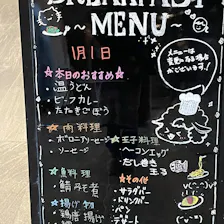 BREAKFAST
~MENU~
1月1日
メニューは
変更になる場合が
ございます!
☆本日のおすすめ☆
・温うどん
・ビーフカレー
・たたきごぼう
☆肉料理
・ボローニャソーセージ
・ソーセージ
☆玉子料理
・だし巻き
☆魚料理
・鯖
☆その他
・サラダバー
・ドリンクバー
・パン
・デザート
☆揚げ物
・鶏唐揚げ